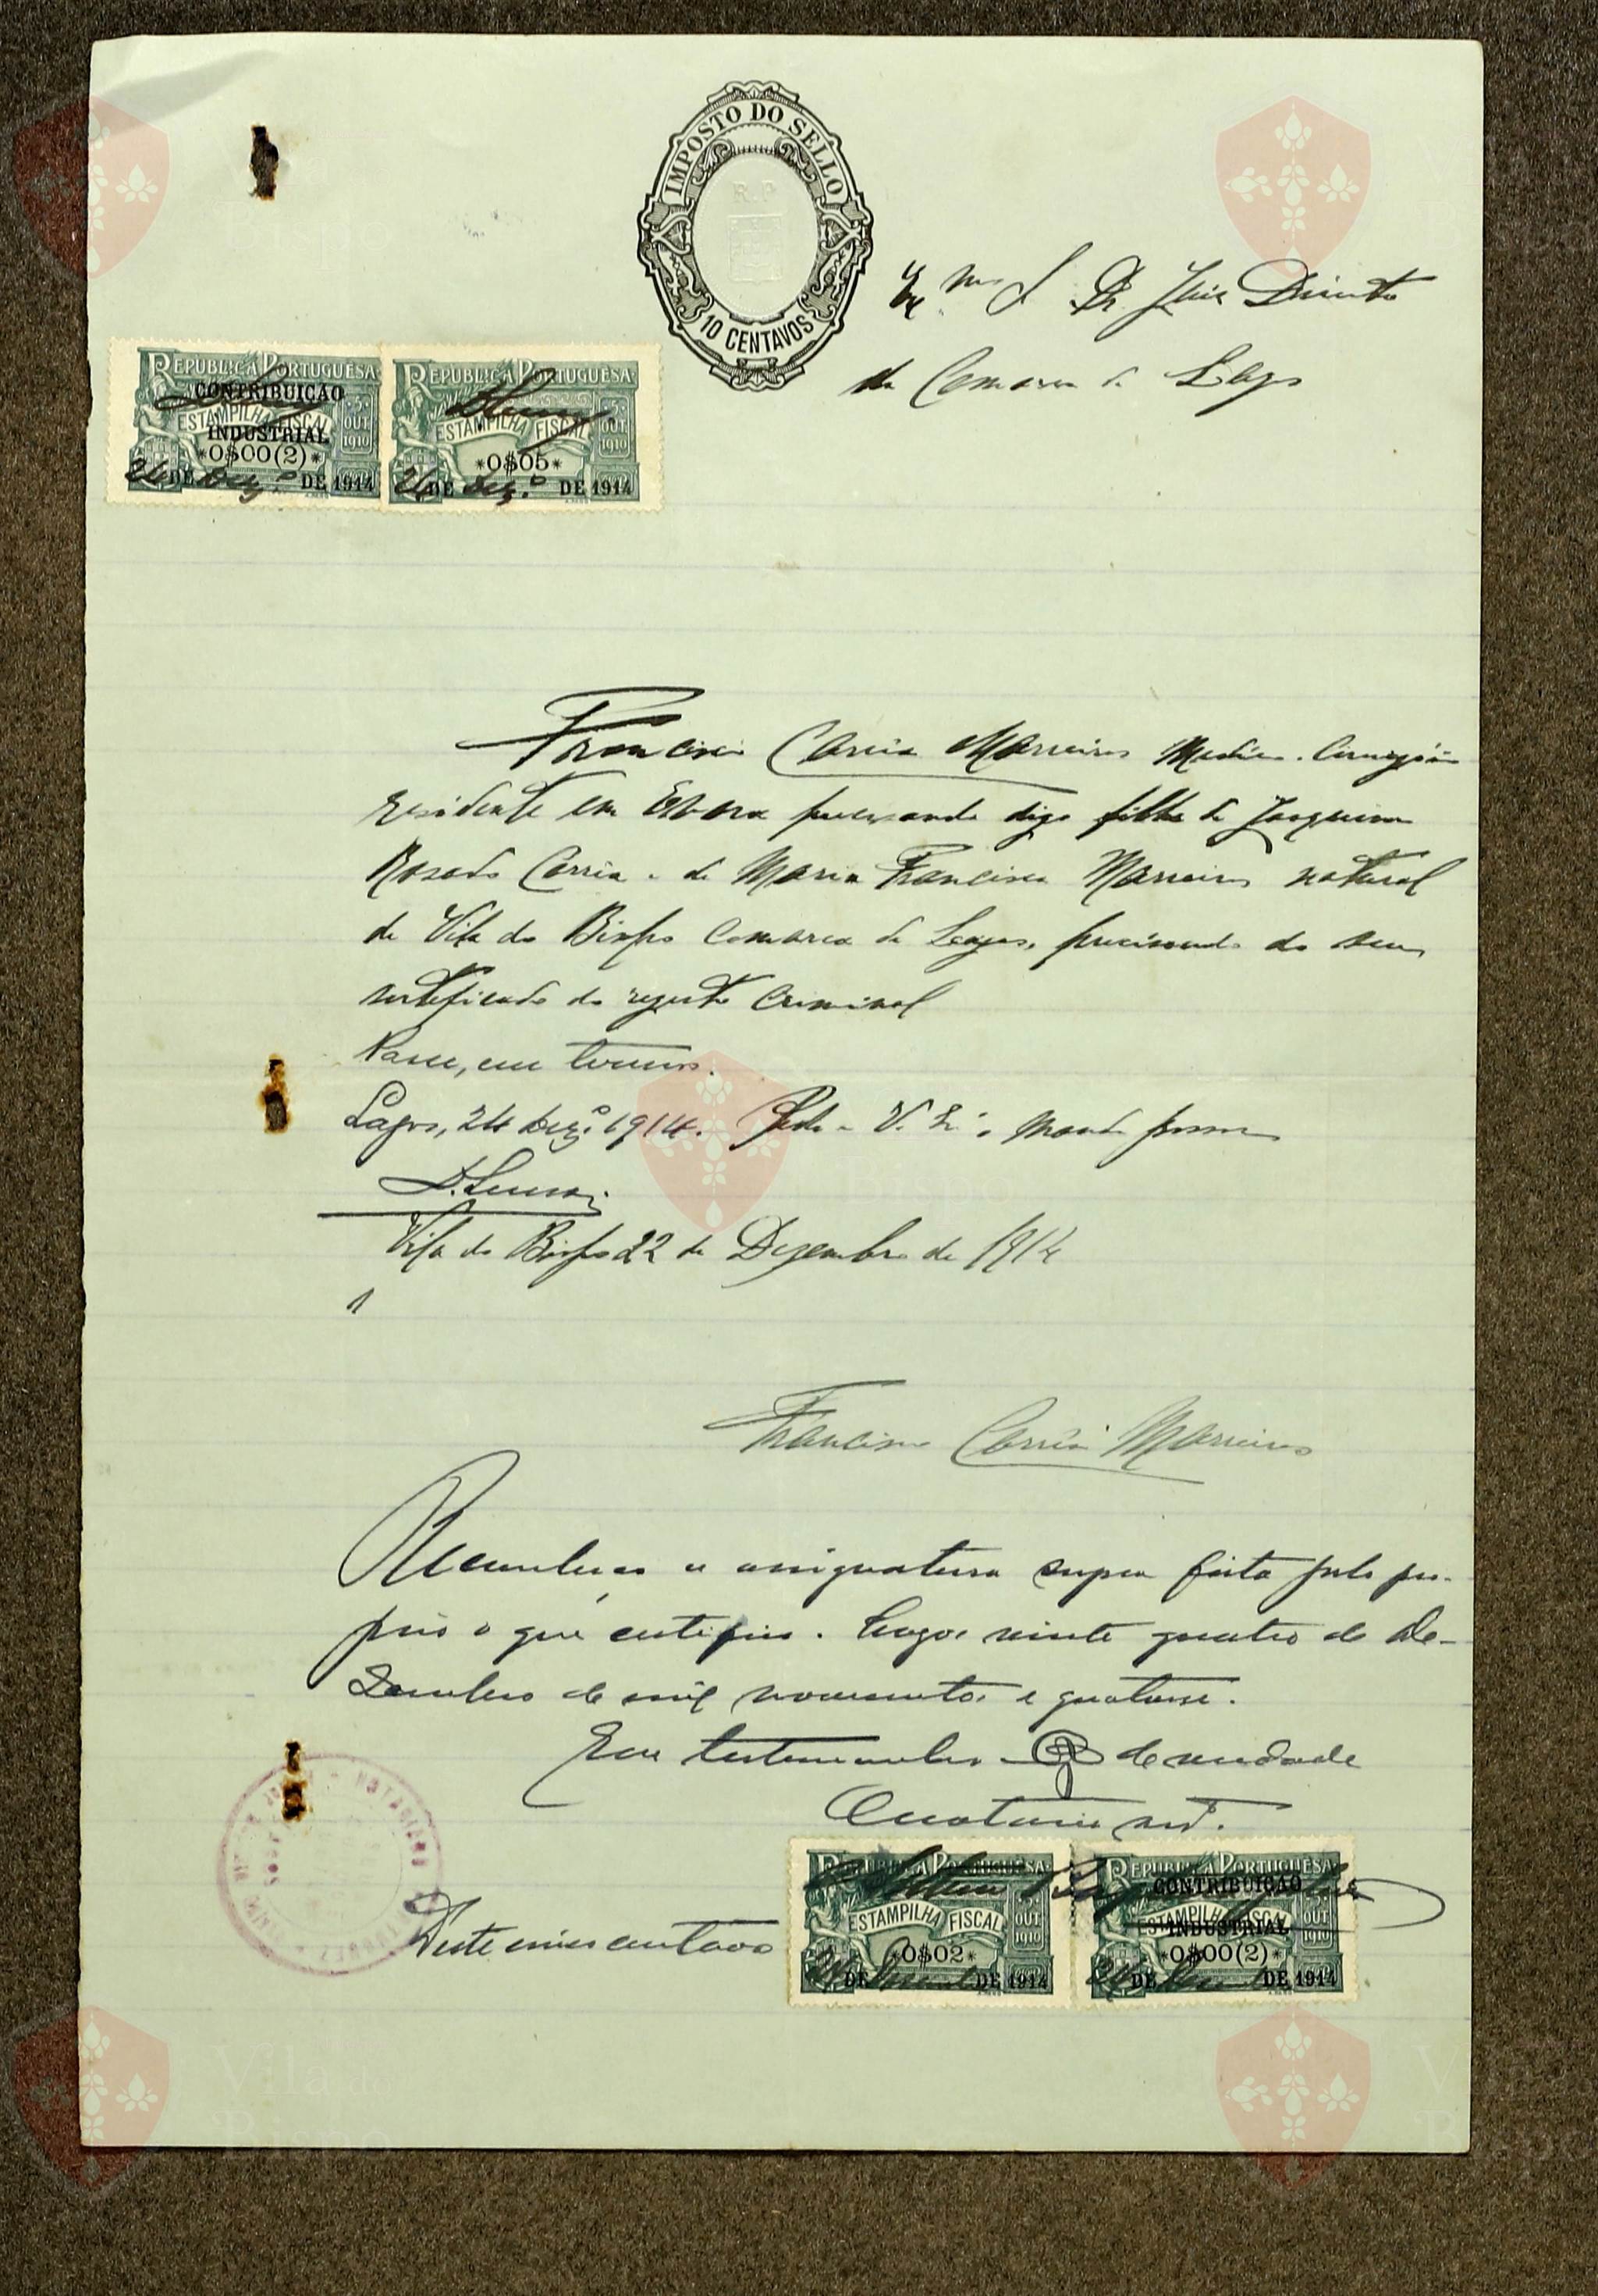 IMPOSTO DO SELLO
R.P
10 CENTAVOS
Ex.mo Sr. Dr. Juiz Direito
da Comarca de Lagos
REPUBLICA PORTUGUESA
CONTRIBUIÇÃO
ESTAMPILHA FISCAL
INDUSTRIAL
5 OUT 1910
*0$00(2)*
24 DE Dez.º DE 1914
REPUBLICA PORTUGUESA
ESTAMPILHA FISCAL
5 OUT 1910
*0$05*
24 DE Dez.º DE 1914
Francisco Corrêa Marreiros Medico-Cirurgião
residente em Evora precisando digo filho de Joaquim
Rosado Corrêa e de Maria Francisca Marreiros natural
de Vila do Bispo Comarca de Lagos, precisando do seu
certeficado do registo Criminal
Passe, em termos.
Lagos, 24 Dez.º 1914. Pede a V. Ex.ª o mande passar
D. Lemos
Vila do Bispo 22 de Dezembro de 1914
Francisco Corrêa Marreiros
Reconheço a assignatura supra feita pelo pro-
prio o que certifico. Lagos vinte quatro de De-
zembro de mil novecentos e quatorse.
Em testemunho de verdade
O notario
REPUBLICA PORTUGUESA
ESTAMPILHA FISCAL
5 OUT 1910
*0$02*
24 DE DE 1914
REPUBLICA PORTUGUESA
CONTRIBUIÇÃO
ESTAMPILHA FISCAL
INDUSTRIAL
5 OUT 1910
*0$00(2)*
24 DE DE 1914
centavos
NOTARIADO
Vila do
Bispo